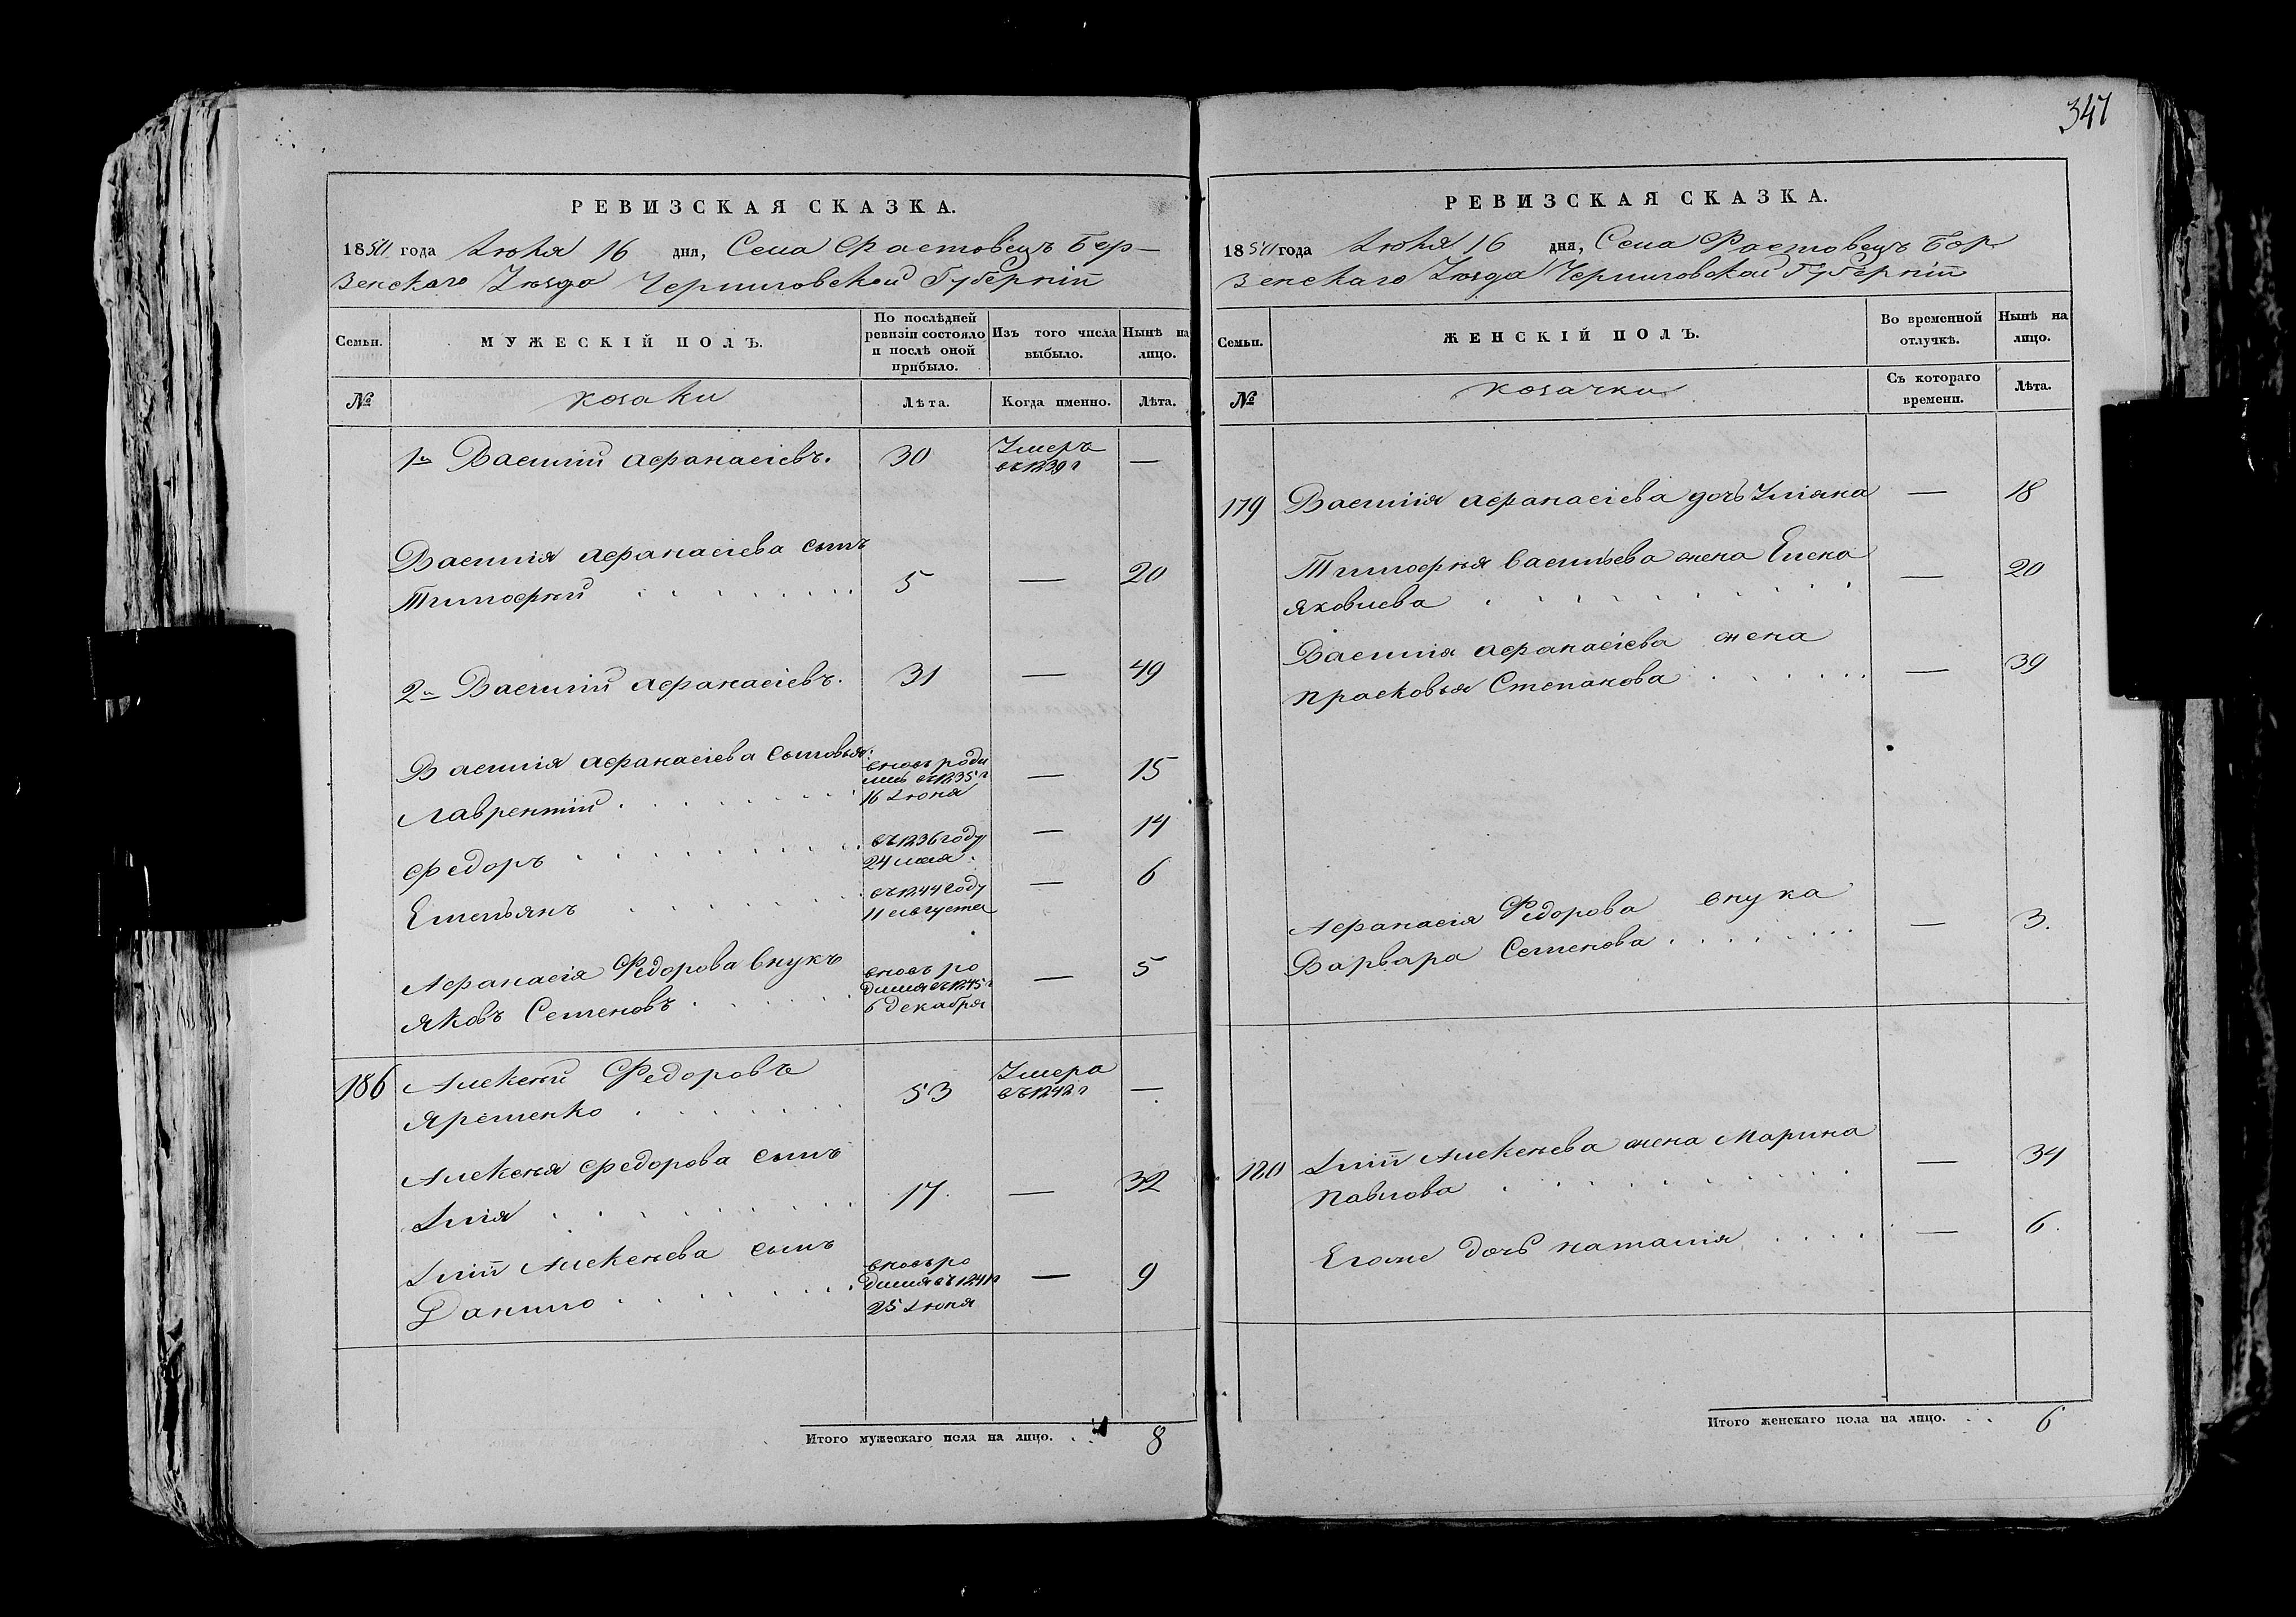 347
РЕВИЗСКАЯ СКАЗКА.
1850 года Июня 16 дня, Села Фастовецъ Бор-
зенскаго Уѣзда Черниговской Губерніи
Семьи.
МУЖЕСКІЙ ПОЛЪ.
По послѣдней
ревизіи состояло
и послѣ оной
прибыло.
Изъ того числа
выбыло.
Нынѣ на
лицо.
№
козаки
Лѣта.
Когда именно.
Лѣта.
1й Василій Афанасіевъ. 30 Умеръ —
въ 1839 г
Василія Афанасіева сынъ
Тимофѣй 5 — 20
2й Василій Афанасіевъ. 31 — 49
Василія Афанасіева сыновья: вновь роди
лись въ 1835 г — 15
Лаврентій 16 Июня
въ 1836 году — 14
Федоръ 24 мая
въ 1844 году — 6
Емельянъ 11 августа
Афанасія Федорова внукъ вновь ро
дился въ 1845 г — 5
Яковъ Семеновъ 6 декабря
186 Алексѣй Федоровъ 53 Умеръ —
Яременко въ 1842 г
Алексѣя Федорова сынъ
Илія 17 — 32
Иліи Алексѣева сынъ вновь ро
дился въ 1841 г — 9
Данило 25 Июня
Итого мужескаго пола на лицо. 8
РЕВИЗСКАЯ СКАЗКА.
1850 года Июня 16 дня, Села Фастовецъ Бор-
зенскаго Уѣзда Черниговской Губерніи
Семьи.
ЖЕНСКІЙ ПОЛЪ.
Во временной
отлучкѣ.
Нынѣ на
лицо.
№
козачки
Съ котораго
времени.
Лѣта.
179 Василія Афанасіева дочь Уліяна — 18
Тимофѣя Васильева жена Елена
Яковлева — 20
Василія Афанасіева жена
Прасковья Степанова — 39
Афанасія Федорова внука
Варвара Семенова — 3.
180 Иліи Алексѣева жена Марина — 34
Павлова
Егоже дочь Наталія — 6.
Итого женскаго пола на лицо. 6